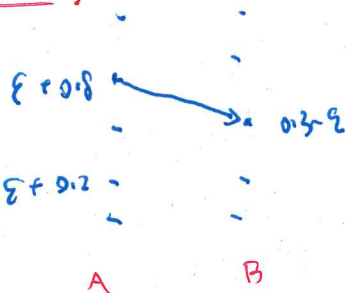 ε + 0.8
0.3 - ε
ε + 0.2
A B